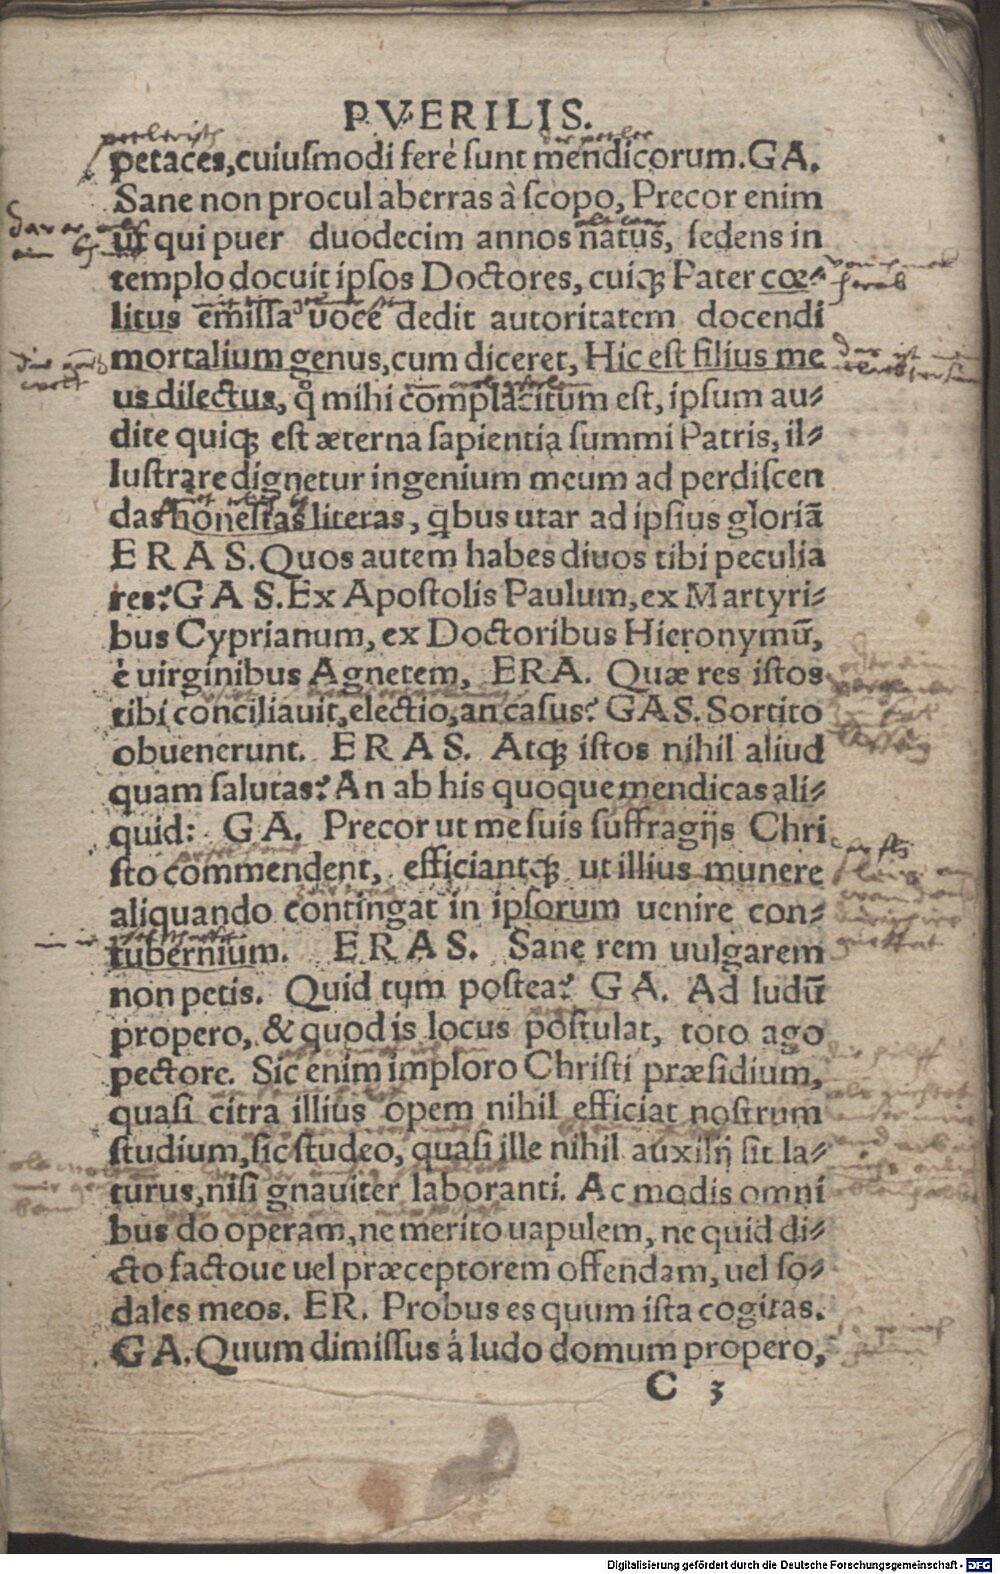 PVERILIS.
petaces, cuiuſmodi ferè ſunt mendicorum. GA.
Sane non procul aberras à ſcopo, Precor enim
ut qui puer duodecim annos natus, ſedens in
templo docuit ipſos Doctores, cuiqꝫ Pater cœ⸗
litus emiſſa uoce dedit autoritatem docendi
mortalium genus, cum diceret, Hic eſt filius me
us dilectus, q̊ mihi complacitum eſt, ipſum au⸗
dite quiqꝫ eſt æterna ſapientia ſummi Patris, il⸗
luſtrare dignetur ingenium meum ad perdiſcen
das honeſtas literas, q̄bus utar ad ipſius gloriā
ERAS. Quos autem habes diuos tibi peculia
res? GAS. Ex Apoſtolis Paulum, ex Martyri⸗
bus Cyprianum, ex Doctoribus Hieronymū,
è uirginibus Agnetem, ERA. Quæ res iſtos
tibi conciliauit, electio, an caſus? GAS. Sortito
obuenerunt. ERAS. Atqꝫ iſtos nihil aliud
quam ſalutas? An ab his quoque mendicas ali⸗
quid: GA. Precor ut me ſuis ſuffragijs Chri
ſto commendent, efficiantqꝫ ut illius munere
aliquando contingat in ipſorum uenire con⸗
tubernium. ERAS. Sane rem uulgarem
non petis. Quid tum poſtea? GA. Ad ludū
propero, & quod is locus poſtulat, toto ago
pectore. Sic enim imploro Chriſti præſidium,
quaſi citra illius opem nihil efficiat noſtrum
ſtudium, ſic ſtudeo, quaſi ille nihil auxilij ſit la⸗
turus, niſi gnauiter laboranti. Ac modis omni
bus do operam, ne merito uapulem, ne quid di⸗
cto factoue uel præceptorem offendam, uel ſo⸗
dales meos. ER. Probus es quum iſta cogitas.
GA. Quum dimiſſus à ludo domum propero,
C 3
Digitalisierung gefördert durch die Deutsche Forschungsgemeinschaft - DFG